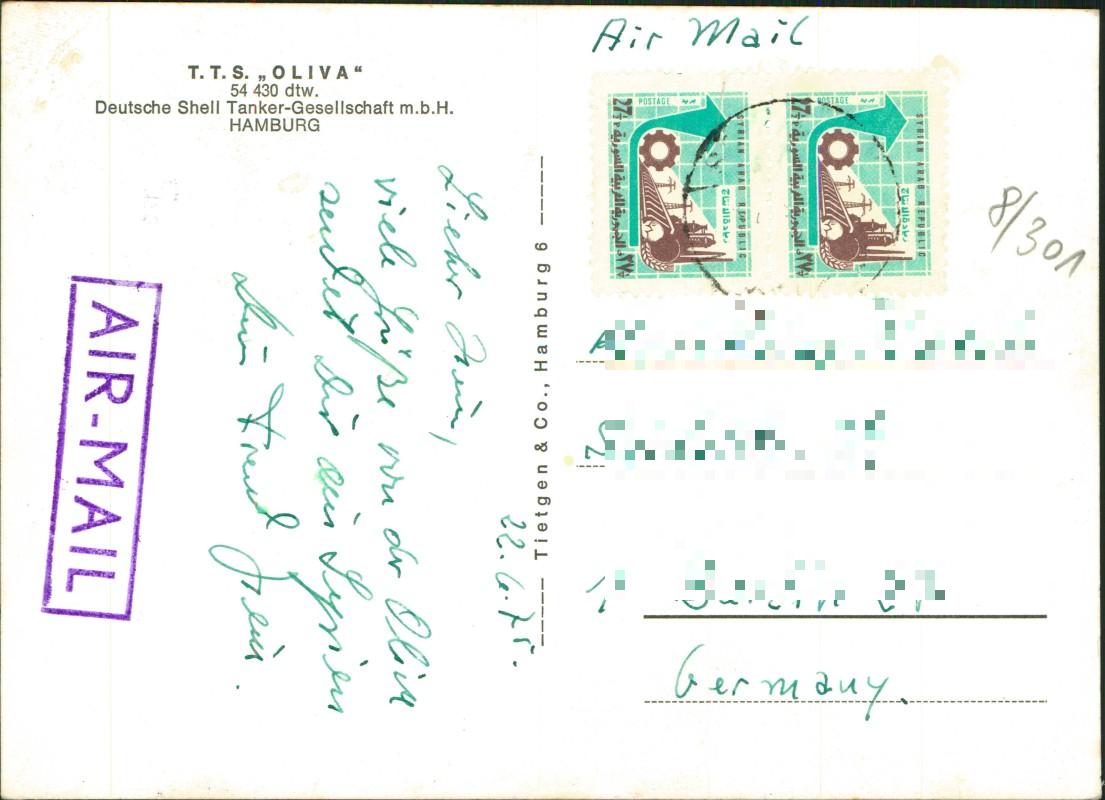 T.T.S. „OLIVA“
54 430 dtw.
Deutsche Shell Tanker-Gesellschaft m.b.H.
HAMBURG
AIR-MAIL
22.6.75.
viele Grüße von der Oliva
sendet dir aus Syrien
dein Freund
Tietgen & Co., Hamburg 6
Air Mail
POSTAGE
SYRIAN ARAB REPUBLIC
الجمهورية العربية السورية
27
POSTAGE
SYRIAN ARAB REPUBLIC
الجمهورية العربية السورية
27
8/301
Germany.